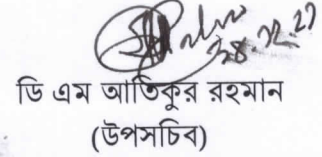 ডি এম আতিকুর রহমান
(উপসচিব)